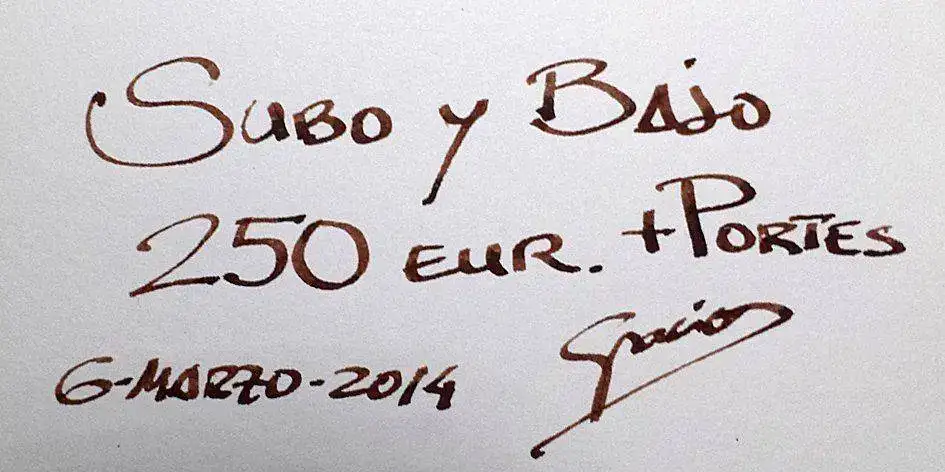 Subo y Bajo
250 EUR. + Portes
Gracias
6-MARZO-2014